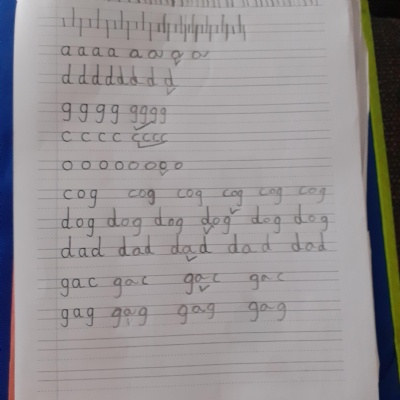 a a a a a a a a
d d d d d d d d
g g g g g g g g
c c c c c c c c
o o o o o o o o o
cog cog cog cog cog cog
dog dog dog dog dog dog
dad dad dad dad dad
gac gac gac gac
gag gag gag gag